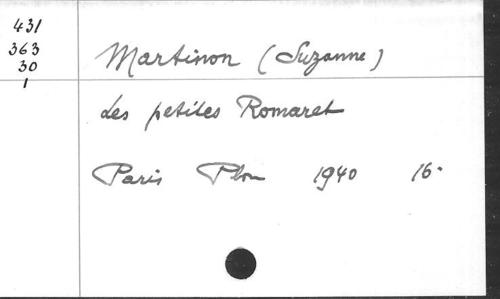 431
363
30
1
Martinon (Suzanne)
Les petites Romaret
Paris Plon 1940 16°